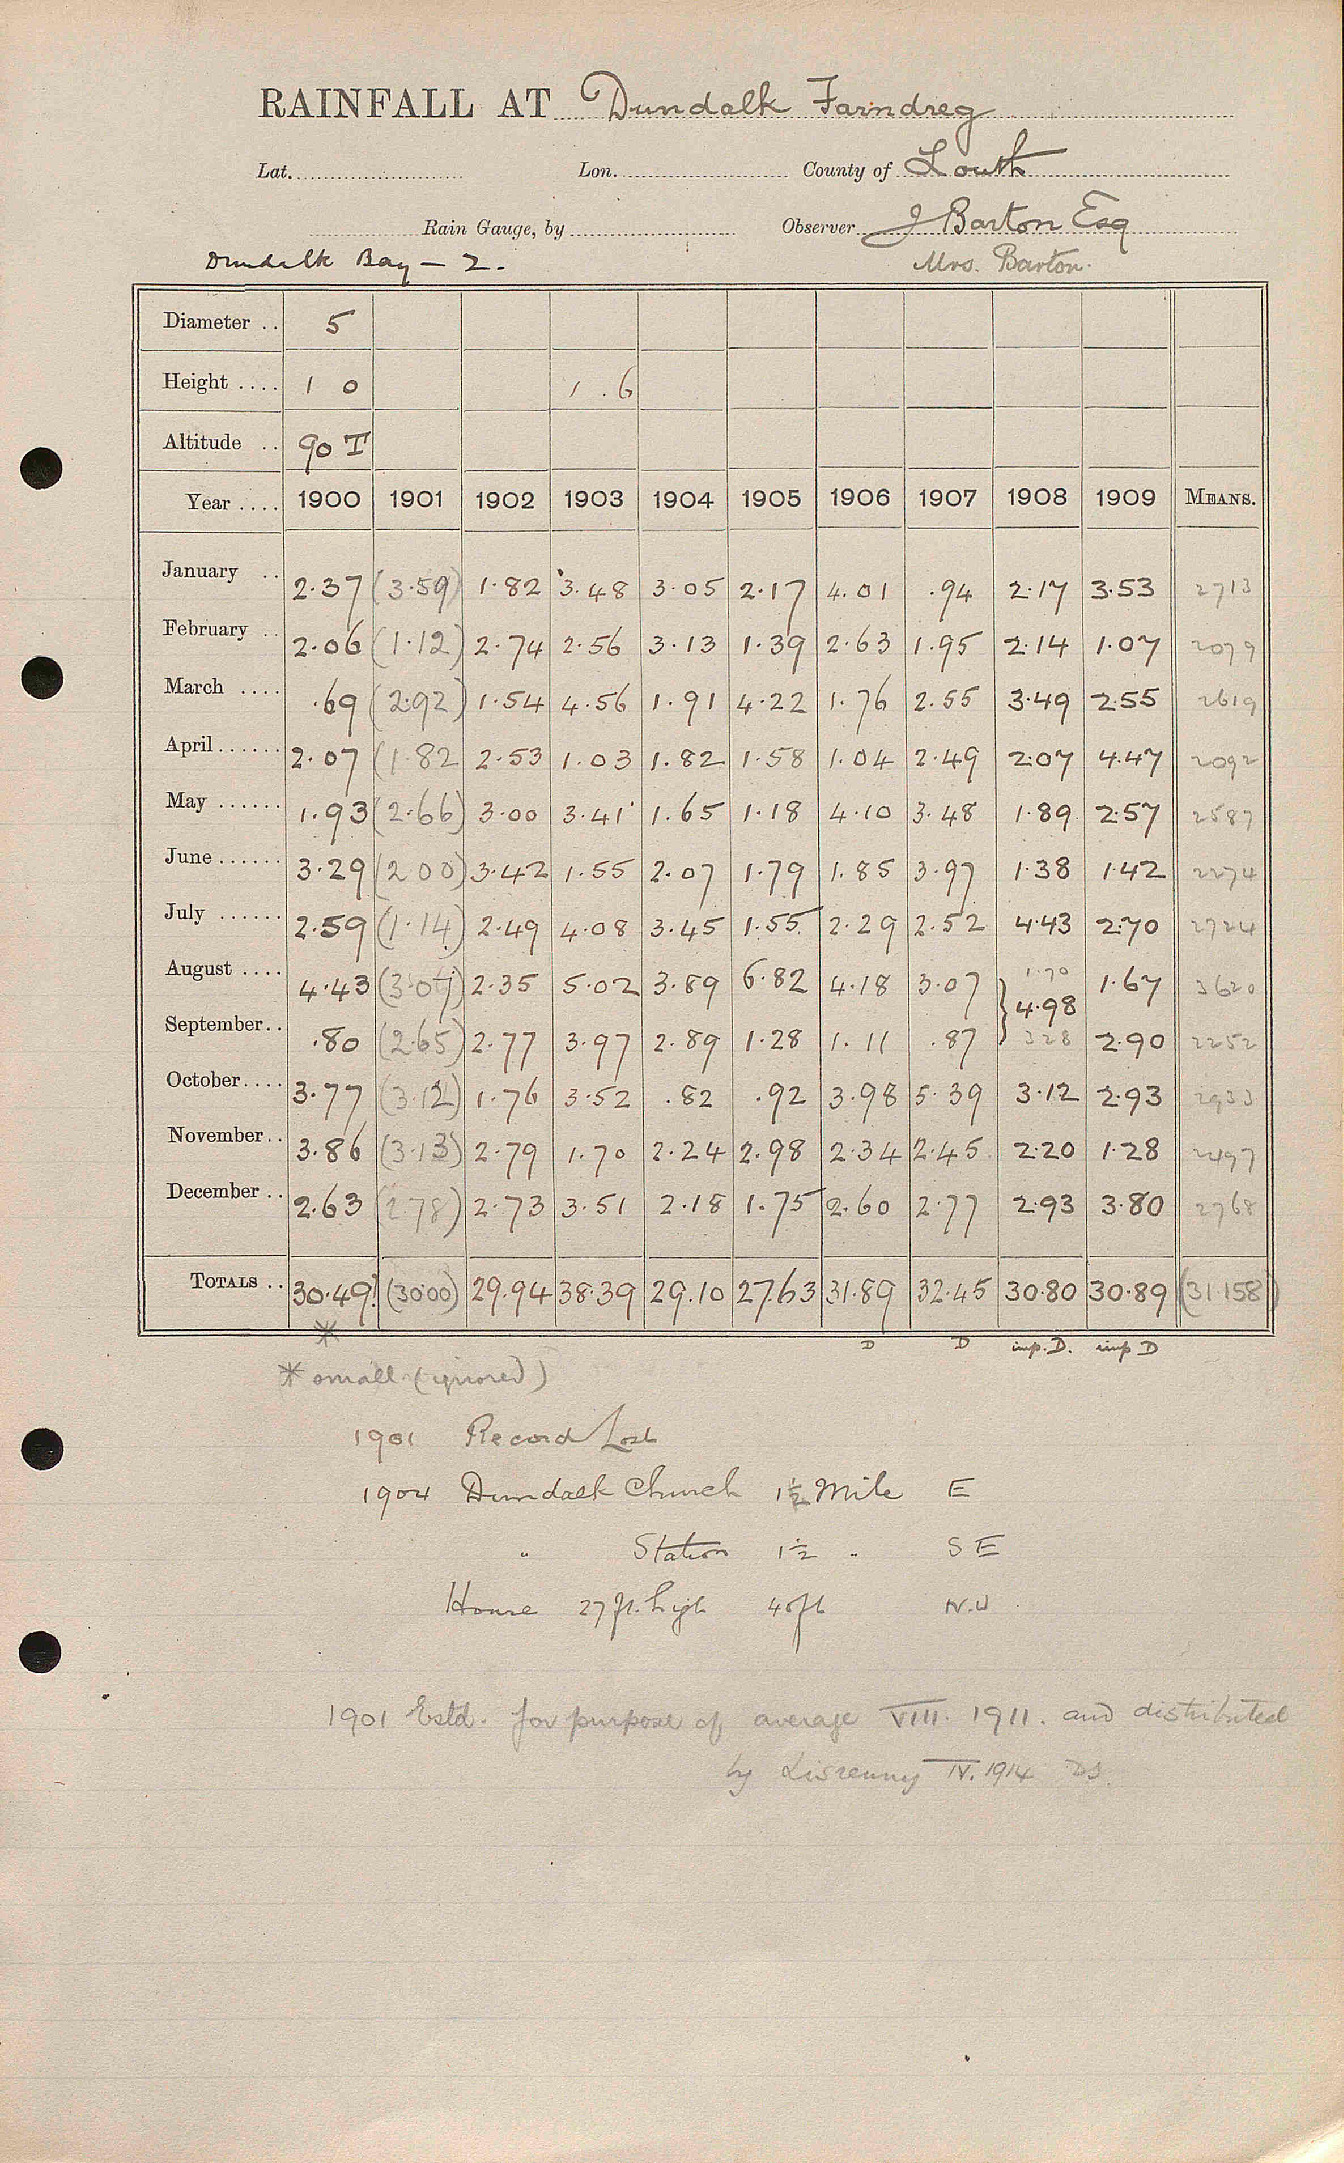 RAINFALL AT Dundalk Farndreg
Lat. Lon. County of Louth
Rain Gauge, by Observer J Barton Esq
Dundalk Bay – 2. Mrs. Barton.
Diameter .. 5
Height .... 1 0 1.6
Altitude .. 90 T
Year .... 1900 1901 1902 1903 1904 1905 1906 1907 1908 1909 MEANS.
January .. 2.37 (3.59) 1.82 3.48 3.05 2.17 4.01 .94 2.17 3.53 2713
February .. 2.06 (1.12) 2.74 2.56 3.13 1.39 2.63 1.95 2.14 1.07 2079
March .... .69 (2.92) 1.54 4.56 1.91 4.22 1.76 2.55 3.49 2.55 2619
April ...... 2.07 (1.82 2.53 1.03 1.82 1.58 1.04 2.49 2.07 4.47 2092
May ...... 1.93 (2.66) 3.00 3.41 1.65 1.18 4.10 3.48 1.89 2.57 2587
June ...... 3.29 (2.00) 3.42 1.55 2.07 1.79 1.85 3.97 1.38 1.42 2274
July ...... 2.59 (1.14) 2.49 4.08 3.45 1.55 2.29 2.52 4.43 2.70 2724
August .... 4.43 (3.07) 2.35 5.02 3.89 6.82 4.18 3.07 1.70 1.67 3620
} 4.98
September .. .80 (2.65) 2.77 3.97 2.89 1.28 1.11 .87 328 2.90 2252
October .... 3.77 (3.12) 1.76 3.52 .82 .92 3.98 5.39 3.12 2.93 2933
November .. 3.86 (3.13) 2.79 1.70 2.24 2.98 2.34 2.45 2.20 1.28 2497
December .. 2.63 (2.78) 2.73 3.51 2.18 1.75 2.60 2.77 2.93 3.80 2768
TOTALS .. 30.49 (30.00) 29.94 38.39 29.10 27.63 31.89 32.45 30.80 30.89 (31.158)
* D D imp. D. imp D
* small (ignored)
1901 Record Lost
1904 Dundalk Church 1½ Mile E
" Station 1½ " S E
House 27 ft. high 40ft N.W
1901 Estd. for purpose of average VIII. 1911. and distributed
by Lisrenny IV. 1914 DS.